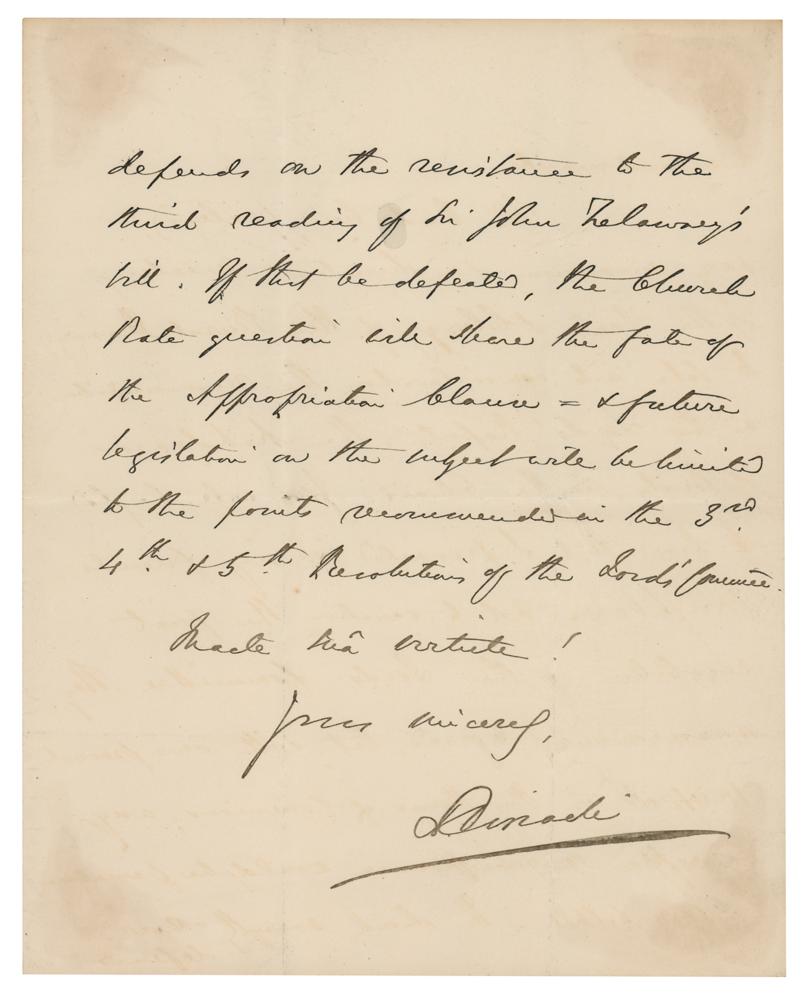 depends on the resistance to the
third reading of Sir John Trelawny's
bill. If that be defeated, the Church
Rate question will share the fate of
the Appropriation Clause = & future
legislation on the subject will be limited
to the points recommended in the 3rd.
4th. & 5th Resolutions of the Lords' Committee.
Macte tuâ virtute!
Yours sincerely,
Disraeli